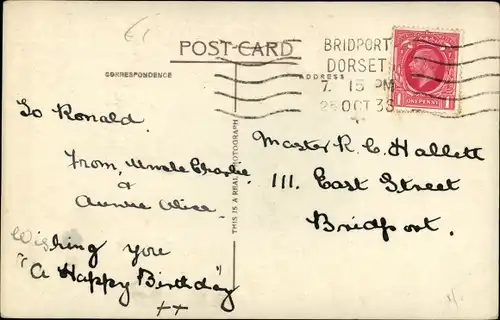 £1
POST-CARD
CORRESPONDENCE
ADDRESS
BRIDPORT
DORSET
7. 15 PM
OCT 36
1 ONE PENNY 1
To Ronald.
From, Uncle Charlie
&
Auntie Alice.
Wishing you
"A Happy Birthday"
++
THIS IS A REAL PHOTOGRAPH
Master R. C. Hallett
111. East Street
Bridport.